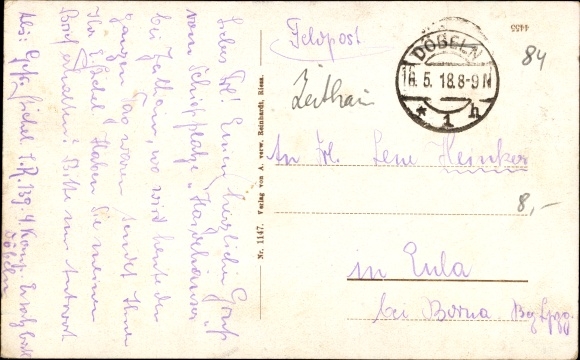 Liebes Frl! Einen herzlichen Gruß
vom Schießplatze „Haidehäuser"
bei Zeithain, wo wir heute den
ganzen Tag waren sendet Ihnen
Ihr E. Sichel. Haben Sie meinen
Brief erhalten? Bitte um Antwort
Abs: Gefr. Sichel I.R. 139. 4 Komp. Ersatzbatl.
Döbeln
Nr. 1147. Verlag von A. verw. Reinhardt, Riesa.
4455
Feldpost
DÖBELN
16. 5. 18. 8-9 N
* 1 h
84
Zeithain
An Frl. Lene Heinker
8,-
in Eula
bei Borna Bez. Lpzg.